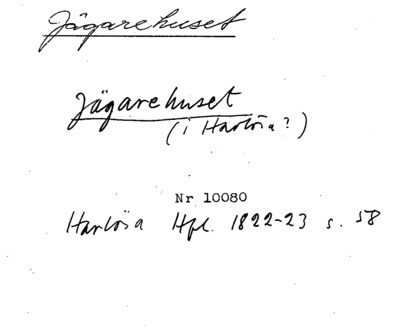 Jägarehuset
Jägarehuset
(i Harlösa?)
Nr 10080
Harlösa Hfl. 1822-23 s. 58